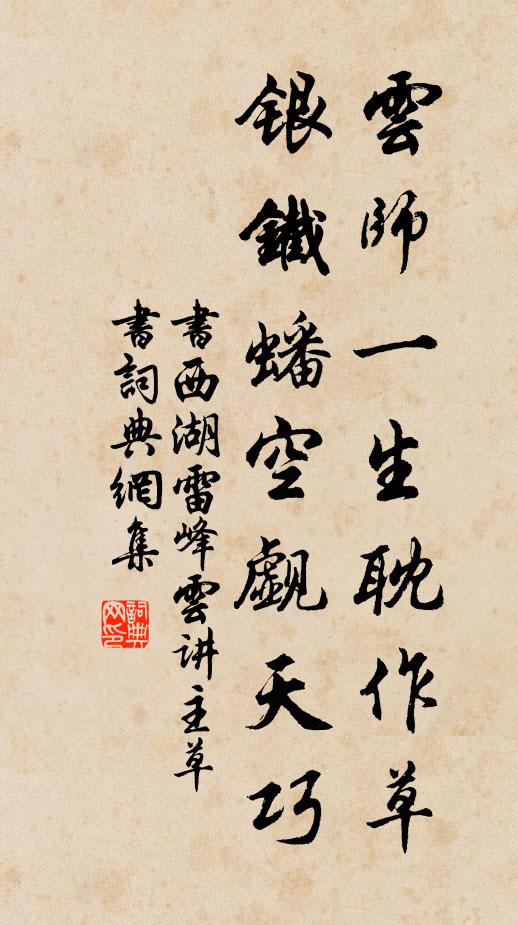 雲師一生耽作草
銀鐵蟠空覰天巧
書西湖雷峰雲讲主草
書詞典網集
詞典
网印